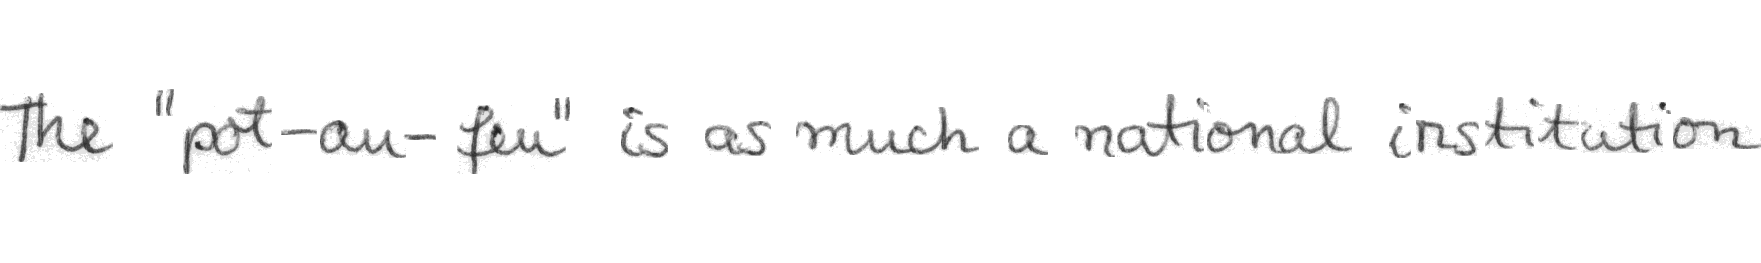 The "pot-au-feu" is as much a national institution